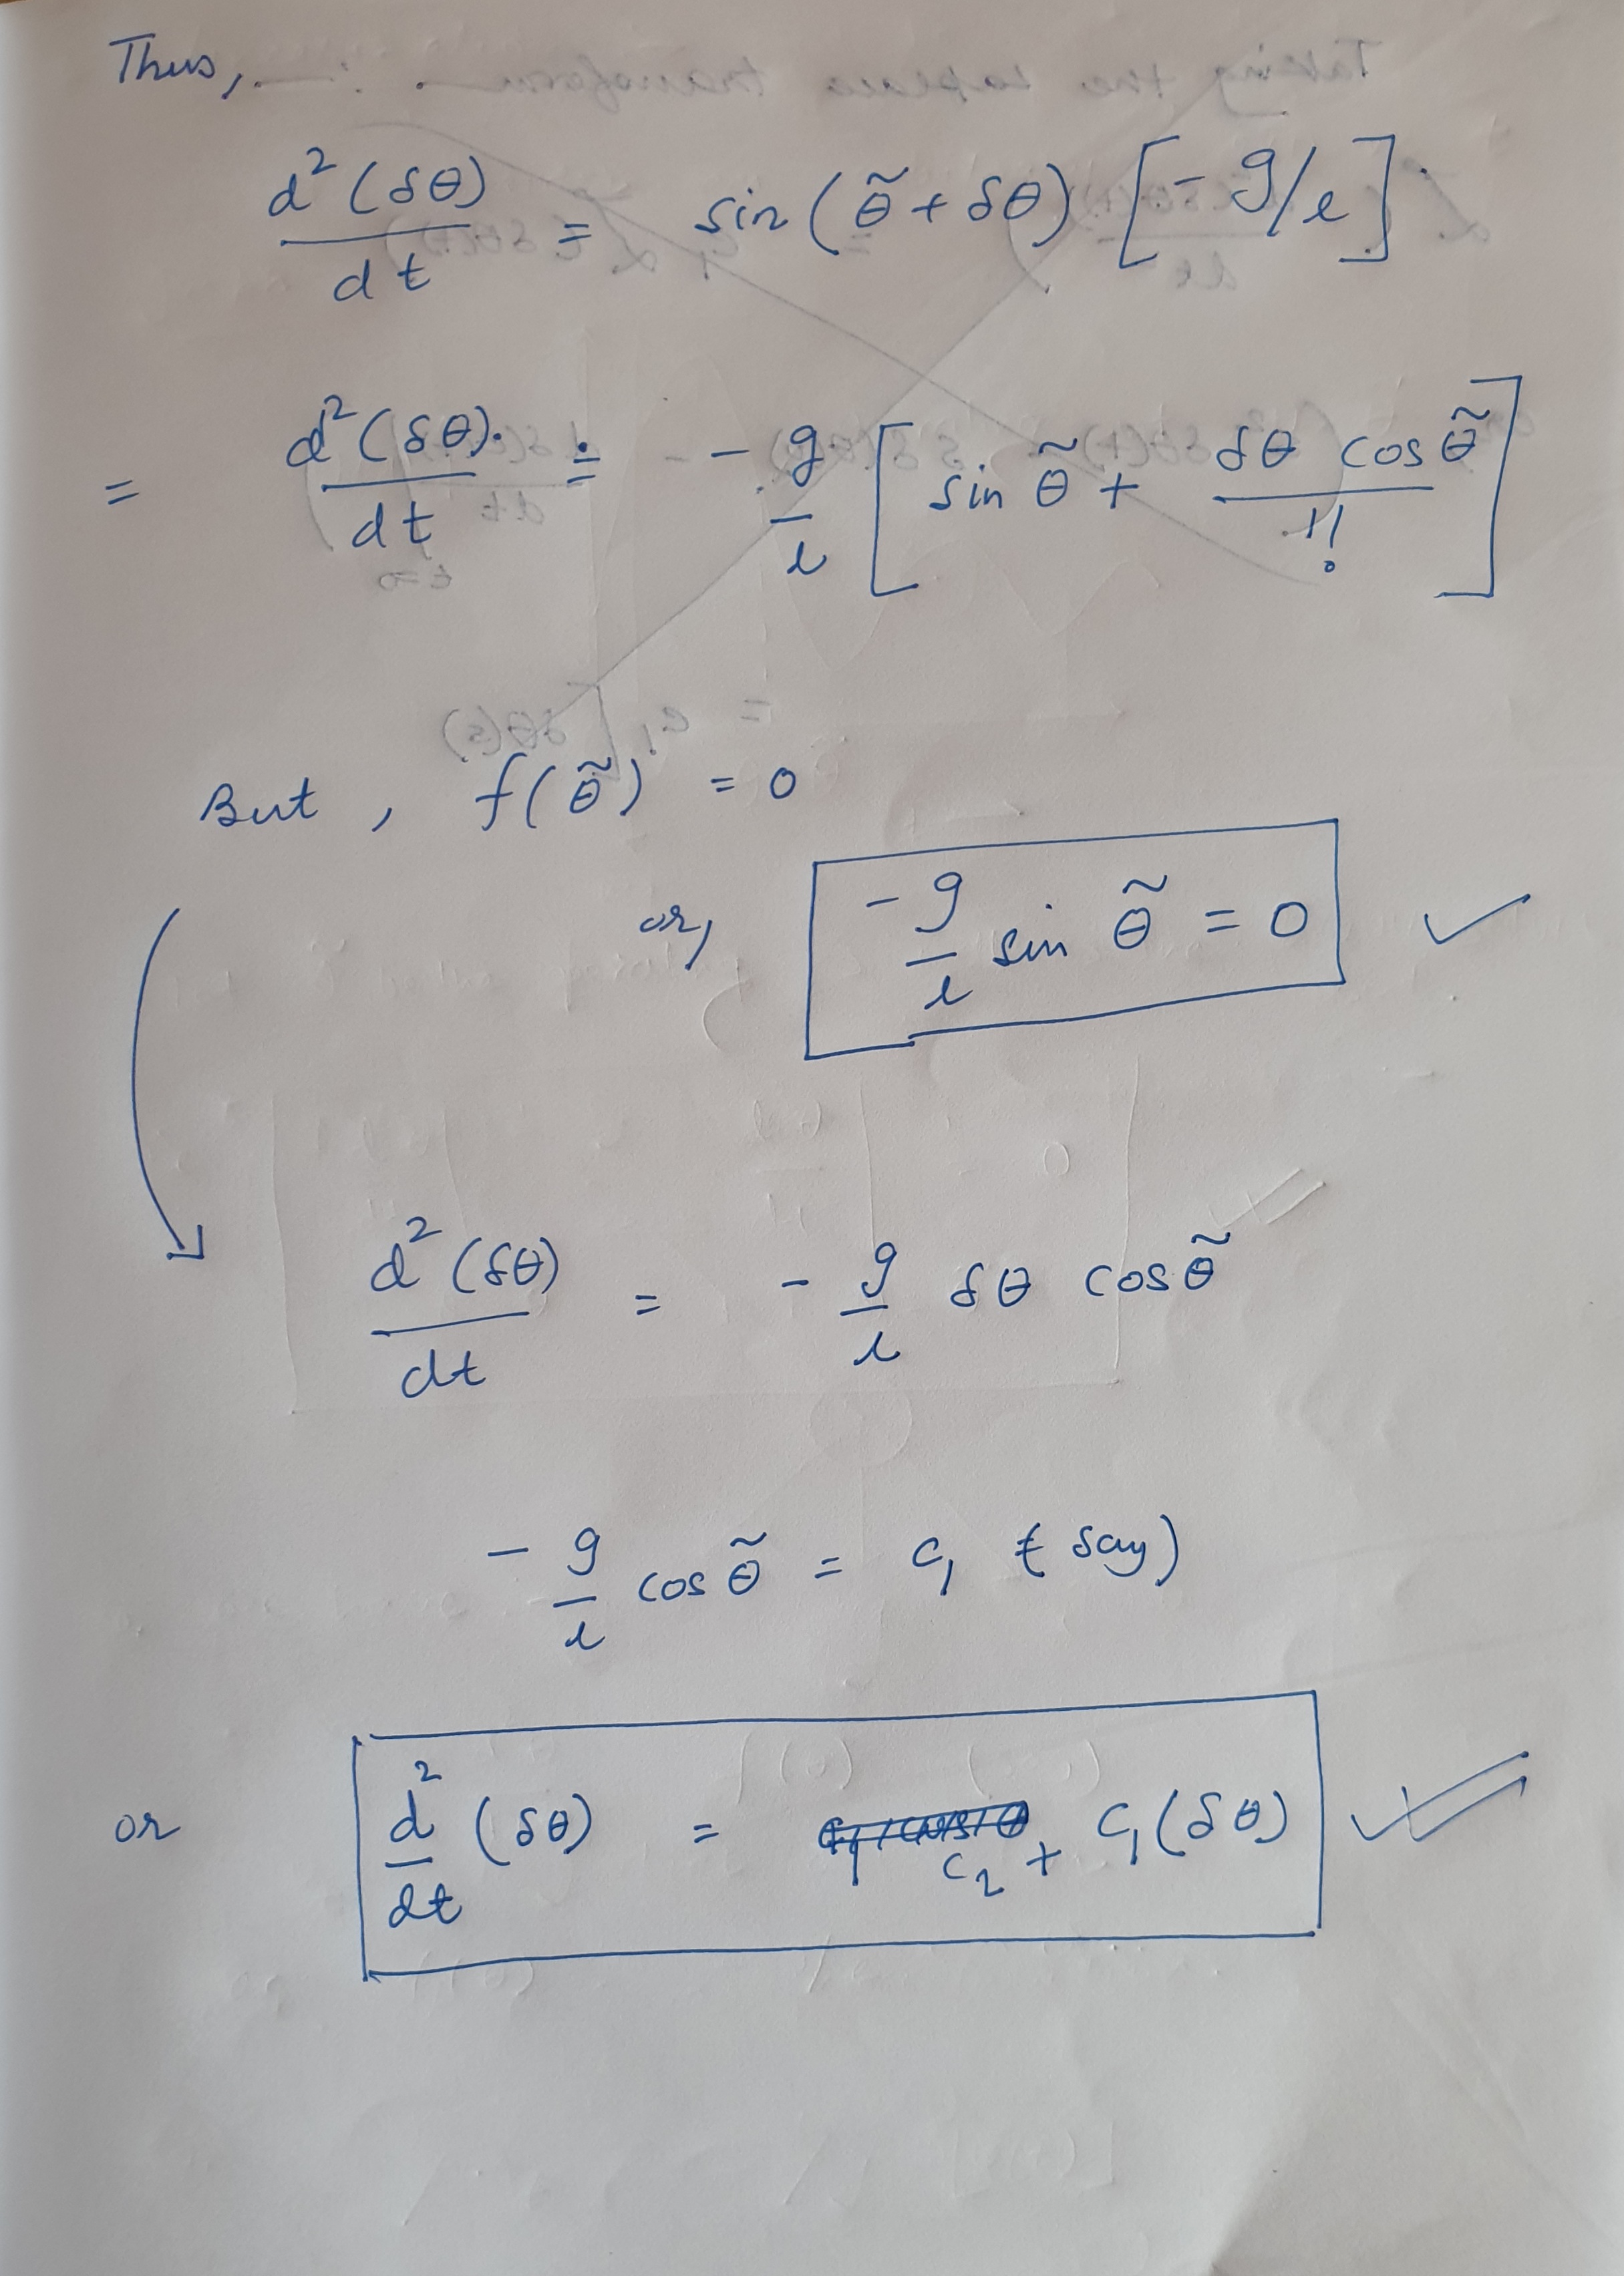 Thus,
d²(δθ)/dt = sin(θ̃ + δθ) [-g/l]
= d²(δθ)/dt = - g/l [sin θ̃ + δθ cos θ̃/1!]
But, f(θ̃) = 0
or, -g/l sin θ̃ = 0 ✓
d²(δθ)/dt = - g/l δθ cos θ̃
- g/l cos θ̃ = c₁ (say)
or d²/dt (δθ) = c₂ + c₁(δθ)